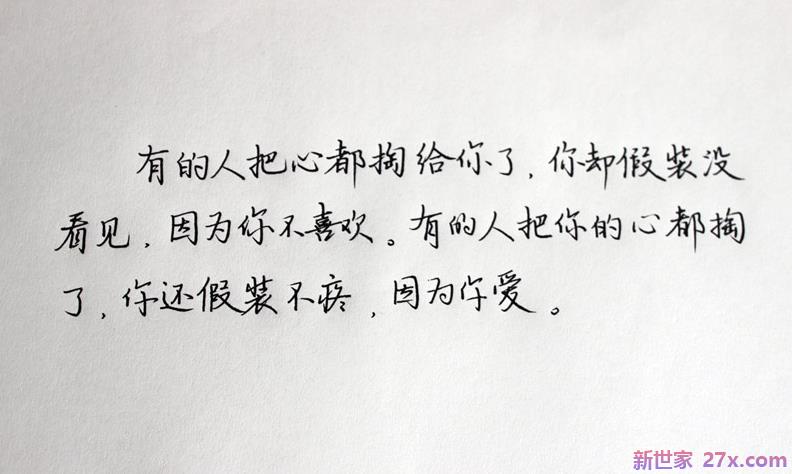 有的人把心都掏给你了，你却假装没
看见，因为你不喜欢。有的人把你的心都掏
了，你还假装不疼，因为你爱。
新世家 27x.com